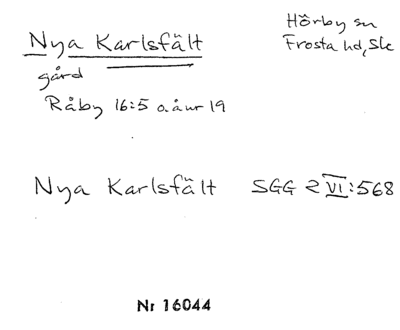 Nya Karlsfält
Hörby sn
Frosta hd, Sk
gård
Råby 16:5 o.å ur 19
Nya Karlsfält SGG 2 VI:568
Nr 16044